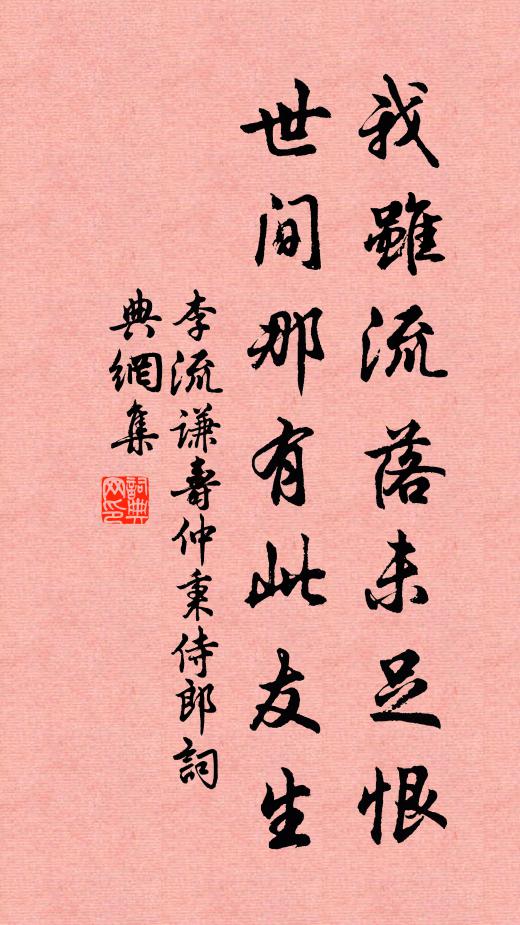 我雖流落未足恨
世间那有此友生
李流谦壽仲秉侍郎詞
典網集
詞典
网印